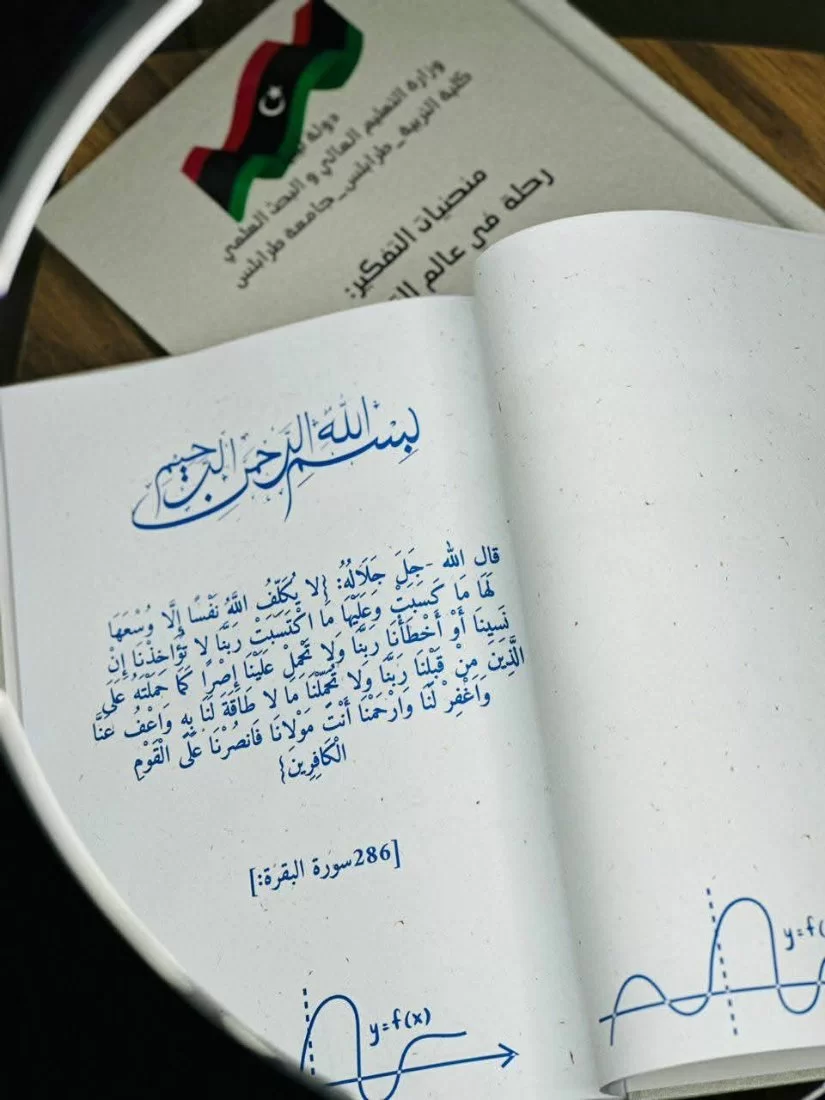 دولة
وزارة التعليم العالي و البحث العلمي
كلية التربية _ طرابلس _ جامعة طرابلس
منحنيات التفكير:
رحلة في عالم
بسم الله الرحمن الرحيم
قال الله -جَلَ جَلَالُهُ: {لا يُكَلِّفُ اللَّهُ نَفْسًا إِلَّا وُسْعَهَا
لَهَا مَا كَسَبَتْ وَعَلَيْهَا مَا اكْتَسَبَتْ رَبَّنَا لا تُؤَاخِذْنَا إِنْ
نَسِينَا أَوْ أَخْطَأْنَا رَبَّنَا وَلا تَحْمِلْ عَلَيْنَا إِصْرًا كَمَا حَمَلْتَهُ عَلَى
الَّذِينَ مِنْ قَبْلِنَا رَبَّنَا وَلا تُحَمِّلْنَا مَا لا طَاقَةَ لَنَا بِهِ وَاعْفُ عَنَّا
وَاغْفِرْ لَنَا وَارْحَمْنَا أَنْتَ مَوْلَانَا فَانصُرْنَا عَلَى الْقَوْمِ
الْكَافِرِينَ}
[286سورة البقرة:]
y=f(x)
y=f(